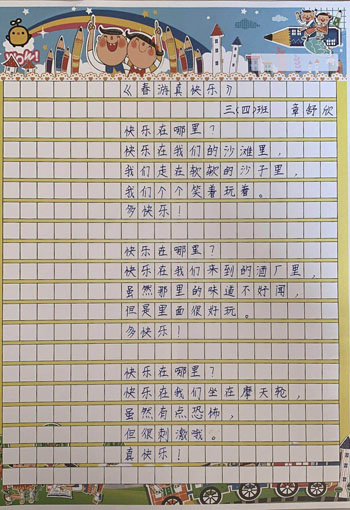 Wow!
《春游真快乐》
三(四)班 章舒欣
快乐在哪里?
快乐在我们的沙滩里,
我们走在软软的沙子里,
我们个个笑着玩着。
多快乐!
快乐在哪里?
快乐在我们来到的酒厂里,
虽然那里的味道不好闻,
但是里面很好玩。
多快乐!
快乐在哪里?
快乐在我们坐在摩天轮,
虽然有点恐怖,
但很刺激哦。
真快乐!